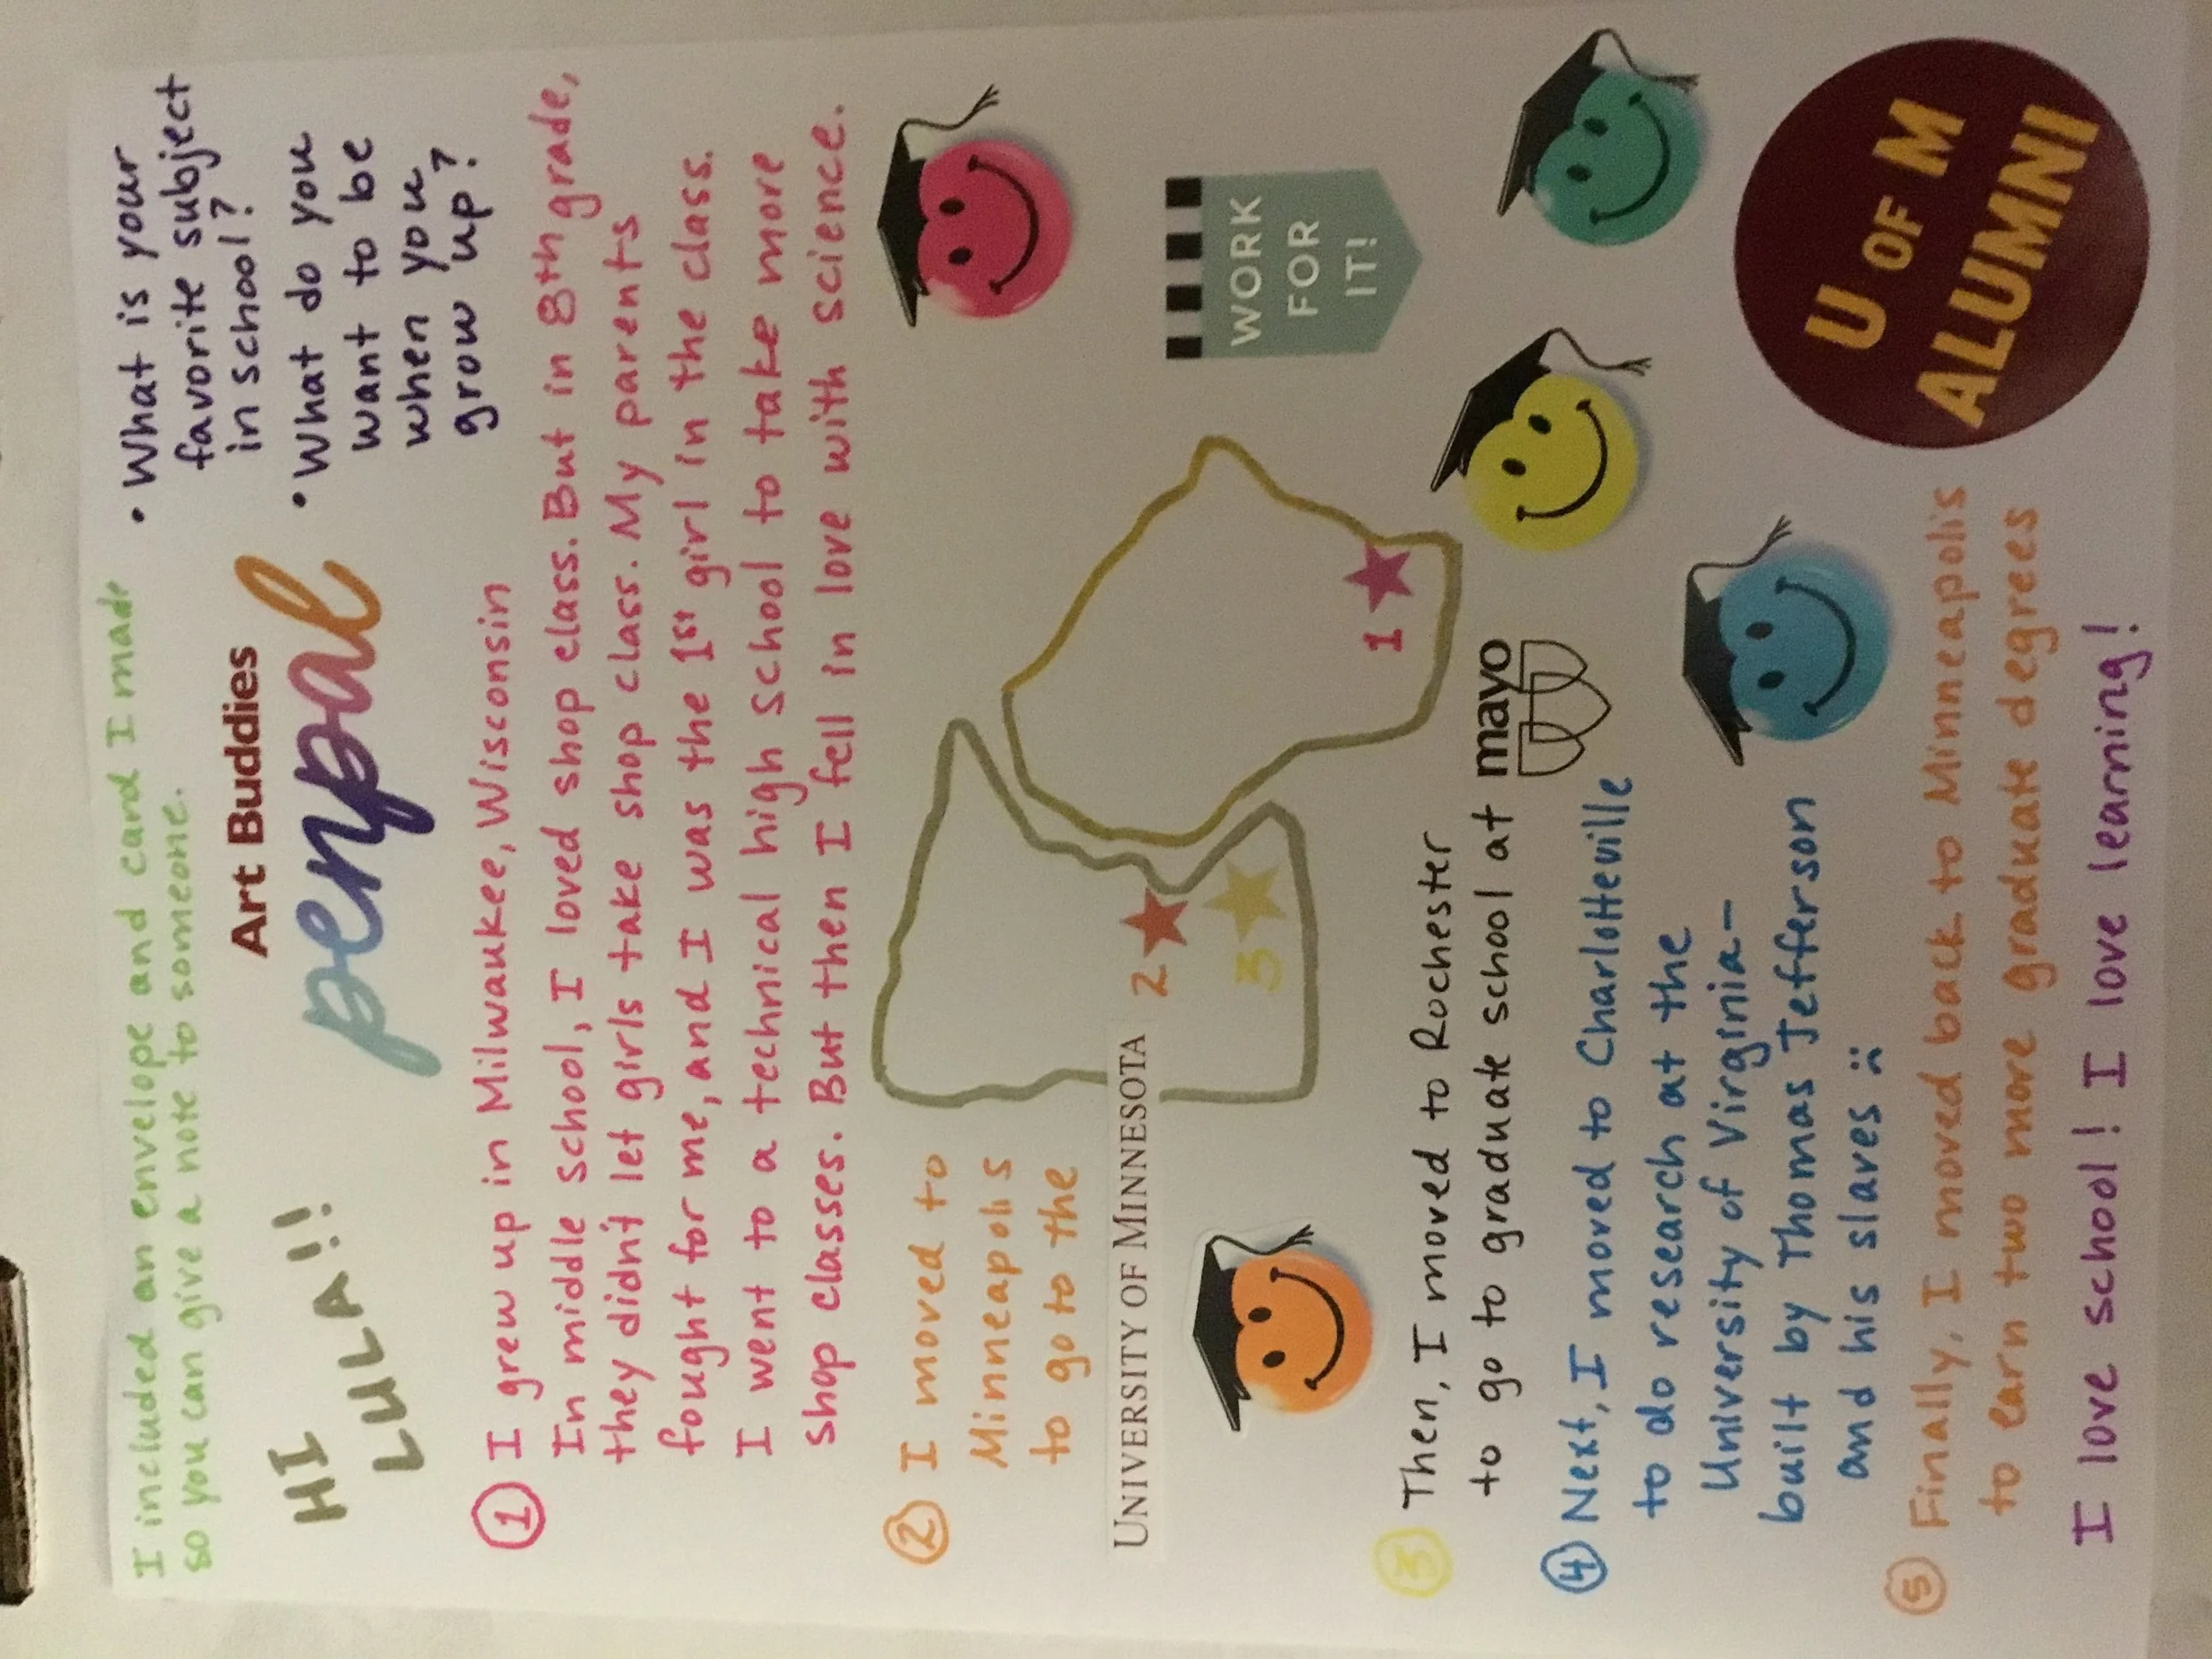 I included an envelope and card I made
so you can give a note to someone.
HI
LULA!!
Art Buddies
penpal
• What is your
favorite subject
in school?
• What do you
want to be
when you
grow up?
1 I grew up in Milwaukee, Wisconsin
In middle school, I loved shop class. But in 8th grade,
they didn't let girls take shop class. My parents
fought for me, and I was the 1st girl in the class.
I went to a technical high school to take more
shop classes. But then I fell in love with science.
2 I moved to
Minneapolis
to go to the
UNIVERSITY OF MINNESOTA
2
3
1
WORK
FOR
IT!
3 Then, I moved to Rochester
to go to graduate school at mayo
4 Next, I moved to Charlotteville
to do research at the
University of Virginia-
built by Thomas Jefferson
and his slaves :(
5 Finally, I moved back to Minneapolis
to earn two more graduate degrees
I love school! I love learning!
U OF M
ALUMNI